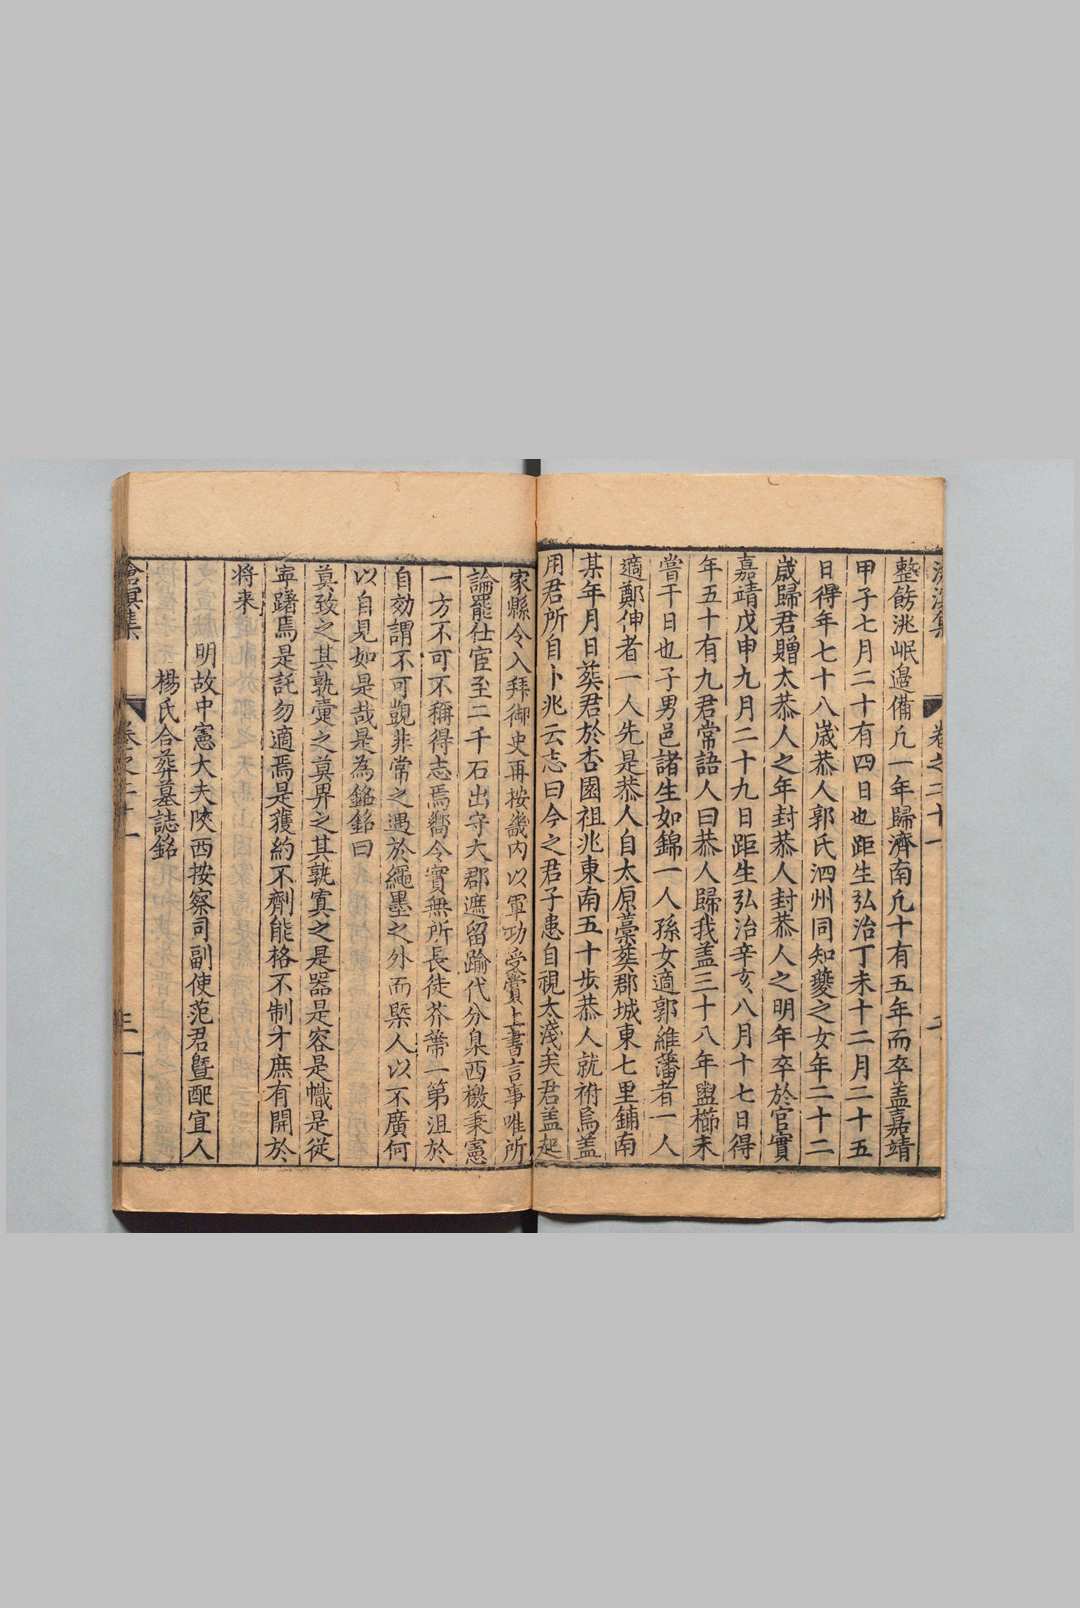 整飭洮岷邉備凢一年歸濟南凢十有五年而卒盖嘉靖
甲子七月二十有四日也距生弘治丁未十二月二十五
日得年七十八歳恭人郭氏泗州同知夔之女年二十二
歳歸君贈太恭人之年封恭人封恭人之明年卒於官實
嘉靖戊申九月二十九日距生弘治辛亥八月十七日得
年五十有九君常語人曰恭人歸我盖三十八年盥櫛未
嘗干日也子男邑諸生如錦一人孫女適郭維藩者一人
適鄭伸者一人先是恭人自太原藁葬郡城東七里鋪南
某年月日葬君於杏園祖兆東南五十歩恭人就祔焉盖
用君所自卜兆云志曰今之君子患自視太淺矣君盖起
家縣令入拜御史再按畿内以軍功受賞上書言事唯所
論罷仕宦至二千石出守大郡遮留踰代分臬西檄秉憲
一方不可不稱得志焉嚮令實無所長徒芥蔕一第沮於
自効謂不可覬非常之遇於繩墨之外而槩人以不廣何
以自見如是哉是為銘銘曰
莫致之其孰壼之莫畀之其孰寘之是器是容是幟是從
寜躇焉是託勿適焉是獲約不劑能格不制才庶有開於
将来
明故中憲大夫陝西按察司副使范君曁配宜人
楊氏合葬墓誌銘
滄溟集
卷之二十一
三